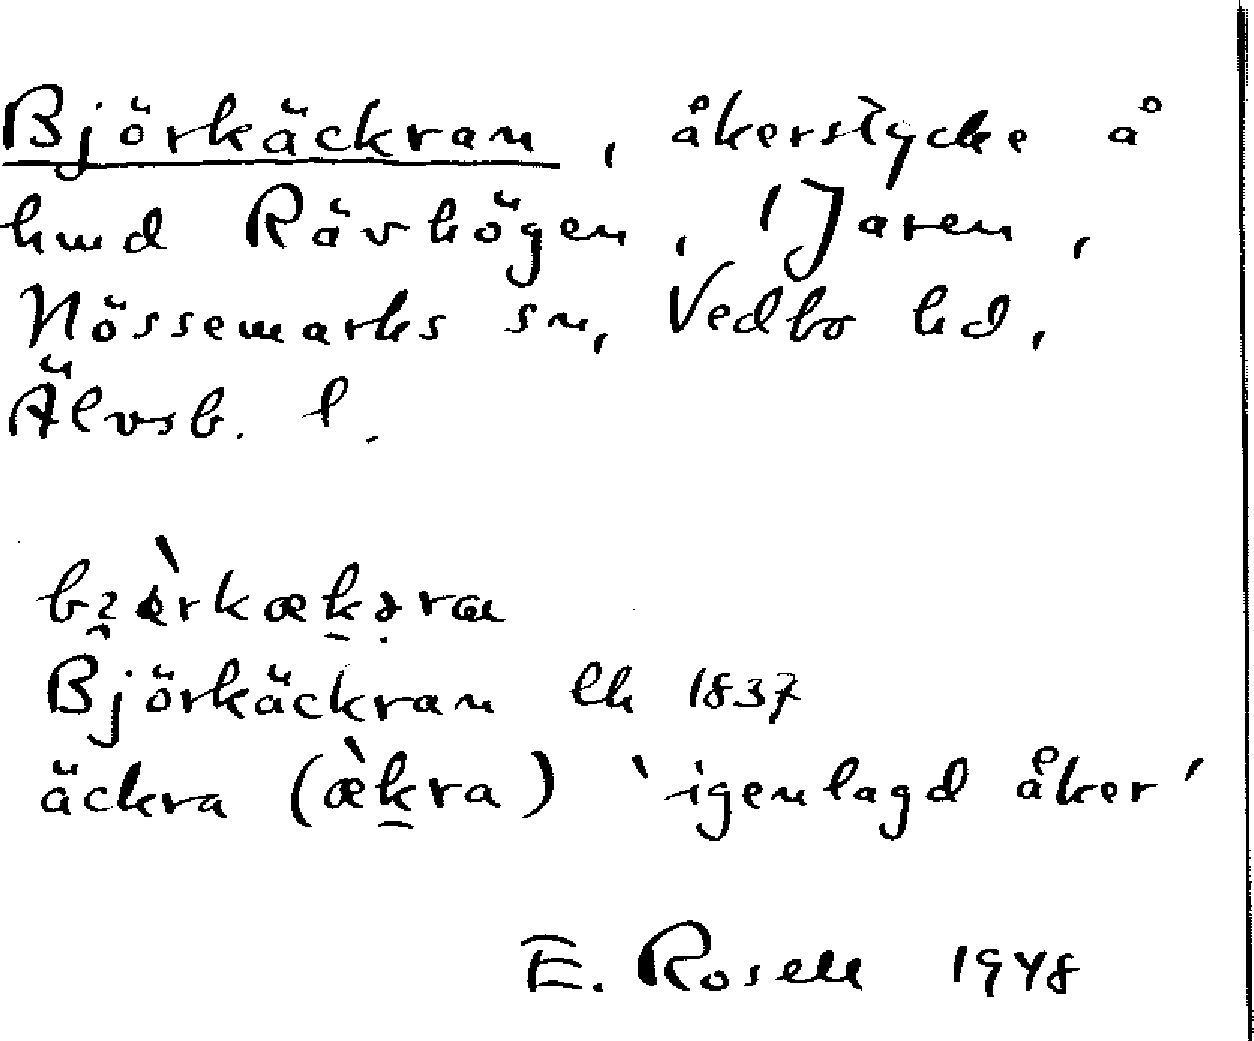 Björkäckran, åkerstycke å
hmd Rävhögen, 1 Jaren,
Nössemarks sn, Vedbo hd,
Älvsb. l.
Björkäckran lh 1837
äckra (æ̀k̠ra) 'igenlagd åker'
E. Rosell 1948